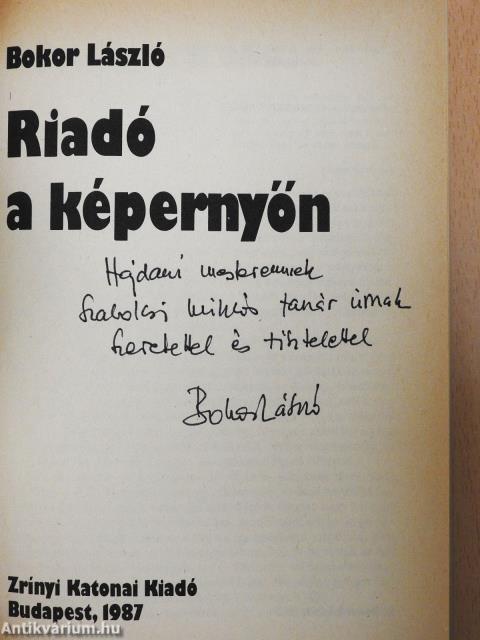 Bokor László
Riadó
a képernyőn
Hajdani mesteremnek
Szabolcsi Miklós tanár úrnak
szeretettel és tisztelettel
Bokor László
Zrínyi Katonai Kiadó
Budapest, 1987
Antikvárium.hu